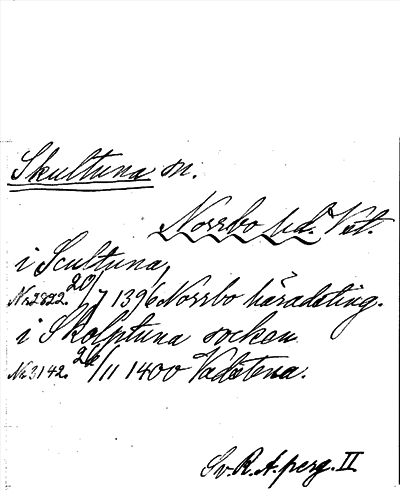 Skultuna sn.
Norrbo hd. Vst.
i Scultuna,
Nr 2822. 20/7 1396 Norrbo häradsting.
i Skolptuna socken
Nr. 3142. 26/11 1400 Vadstena.
Sv. R. A. perg. II